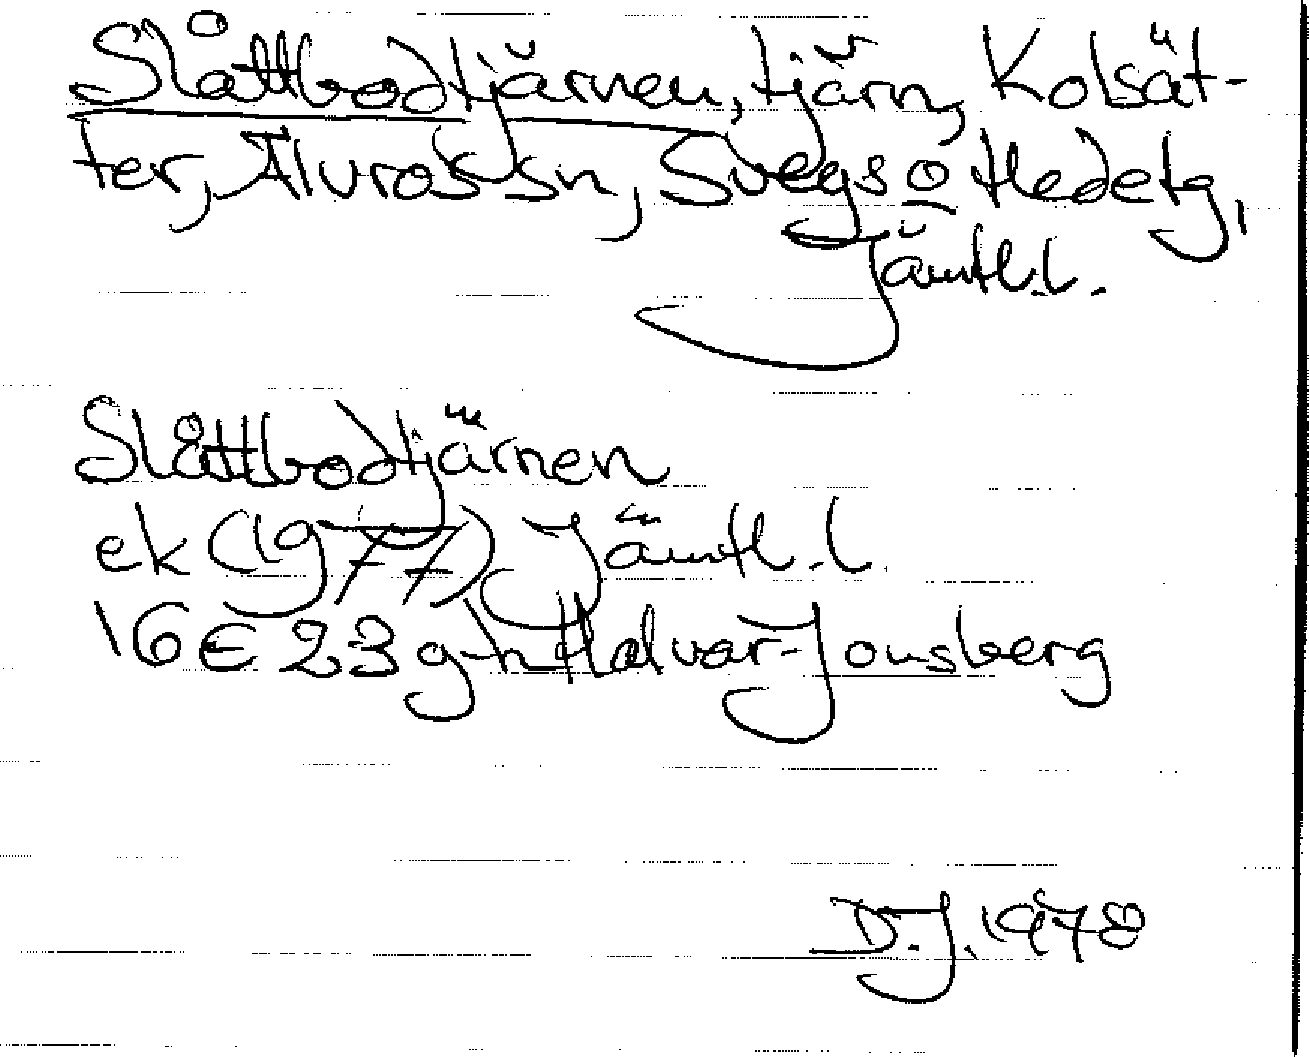 Slåttbodtjärnen, tjärn, Kolsät-
ter, Älvros sn, Svegs o Hedetg,
Jämtl.l.
Slåttbodtjärnen
ek (1977) Jämtl.l.
16E 23 g-h Halvar-Jonsberg
D.J. 1978